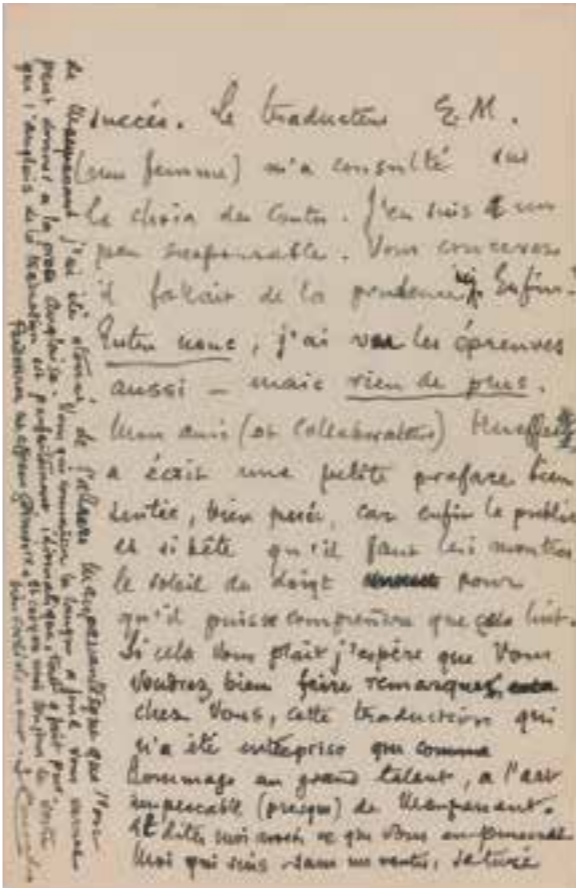 succés. Le traducteur E.M.
(une femme) m'a consulté sur
le choix des Contes. J'en suis un
peu responsable. Vous concevez
il fallait de la prudence. Enfin!
Entre nous, j'ai vu les épreuves
aussi — mais rien de plus.
Mon ami (et Collaborateur) Hueffer
a écrit une petite preface bien
sentie, bien pesée, car enfin le public
est si bête qu'il faut lui montrer
le soleil du doigt pour
qu'il puisse comprendre que cela luit.
Si cela Vous plait j'espère que Vous
voudrez bien faire remarquer,
chez Vous, cette traduction qui
n'a été entreprise que comme
hommage au grand talent, a l'art
impeccable (presque) de Maupassant.
Et dites moi aussi ce que Vous en pensez
Moi qui suis saturé
de Maupassant j'ai été étonné de l'allure Maupassantesque que l'on
peut donner a la prose Anglaise. Vous qui connaissez la langue a fond vous verrez
que l'anglais de la traduction est parfaitement idiomatique, tout a fait pur.